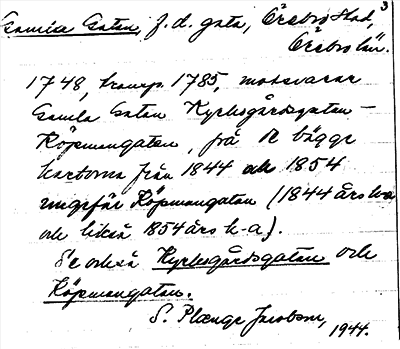 Gamla Gatan, f.d. gata, Örebro stad, 3
Örebro län.
1748, transp. 1785, motsvarar
Gamla Gatan Kyrkogårdsgatan –
Köpmangatan, på de bägge
kartorna från 1844 och 1854
ungefär Köpmangatan (1844 års ka
och likså 1854 års k-a).
Se också Kyrkogårdsgatan och
Köpmangatan.
S. Plænge Jacobson,
1944.